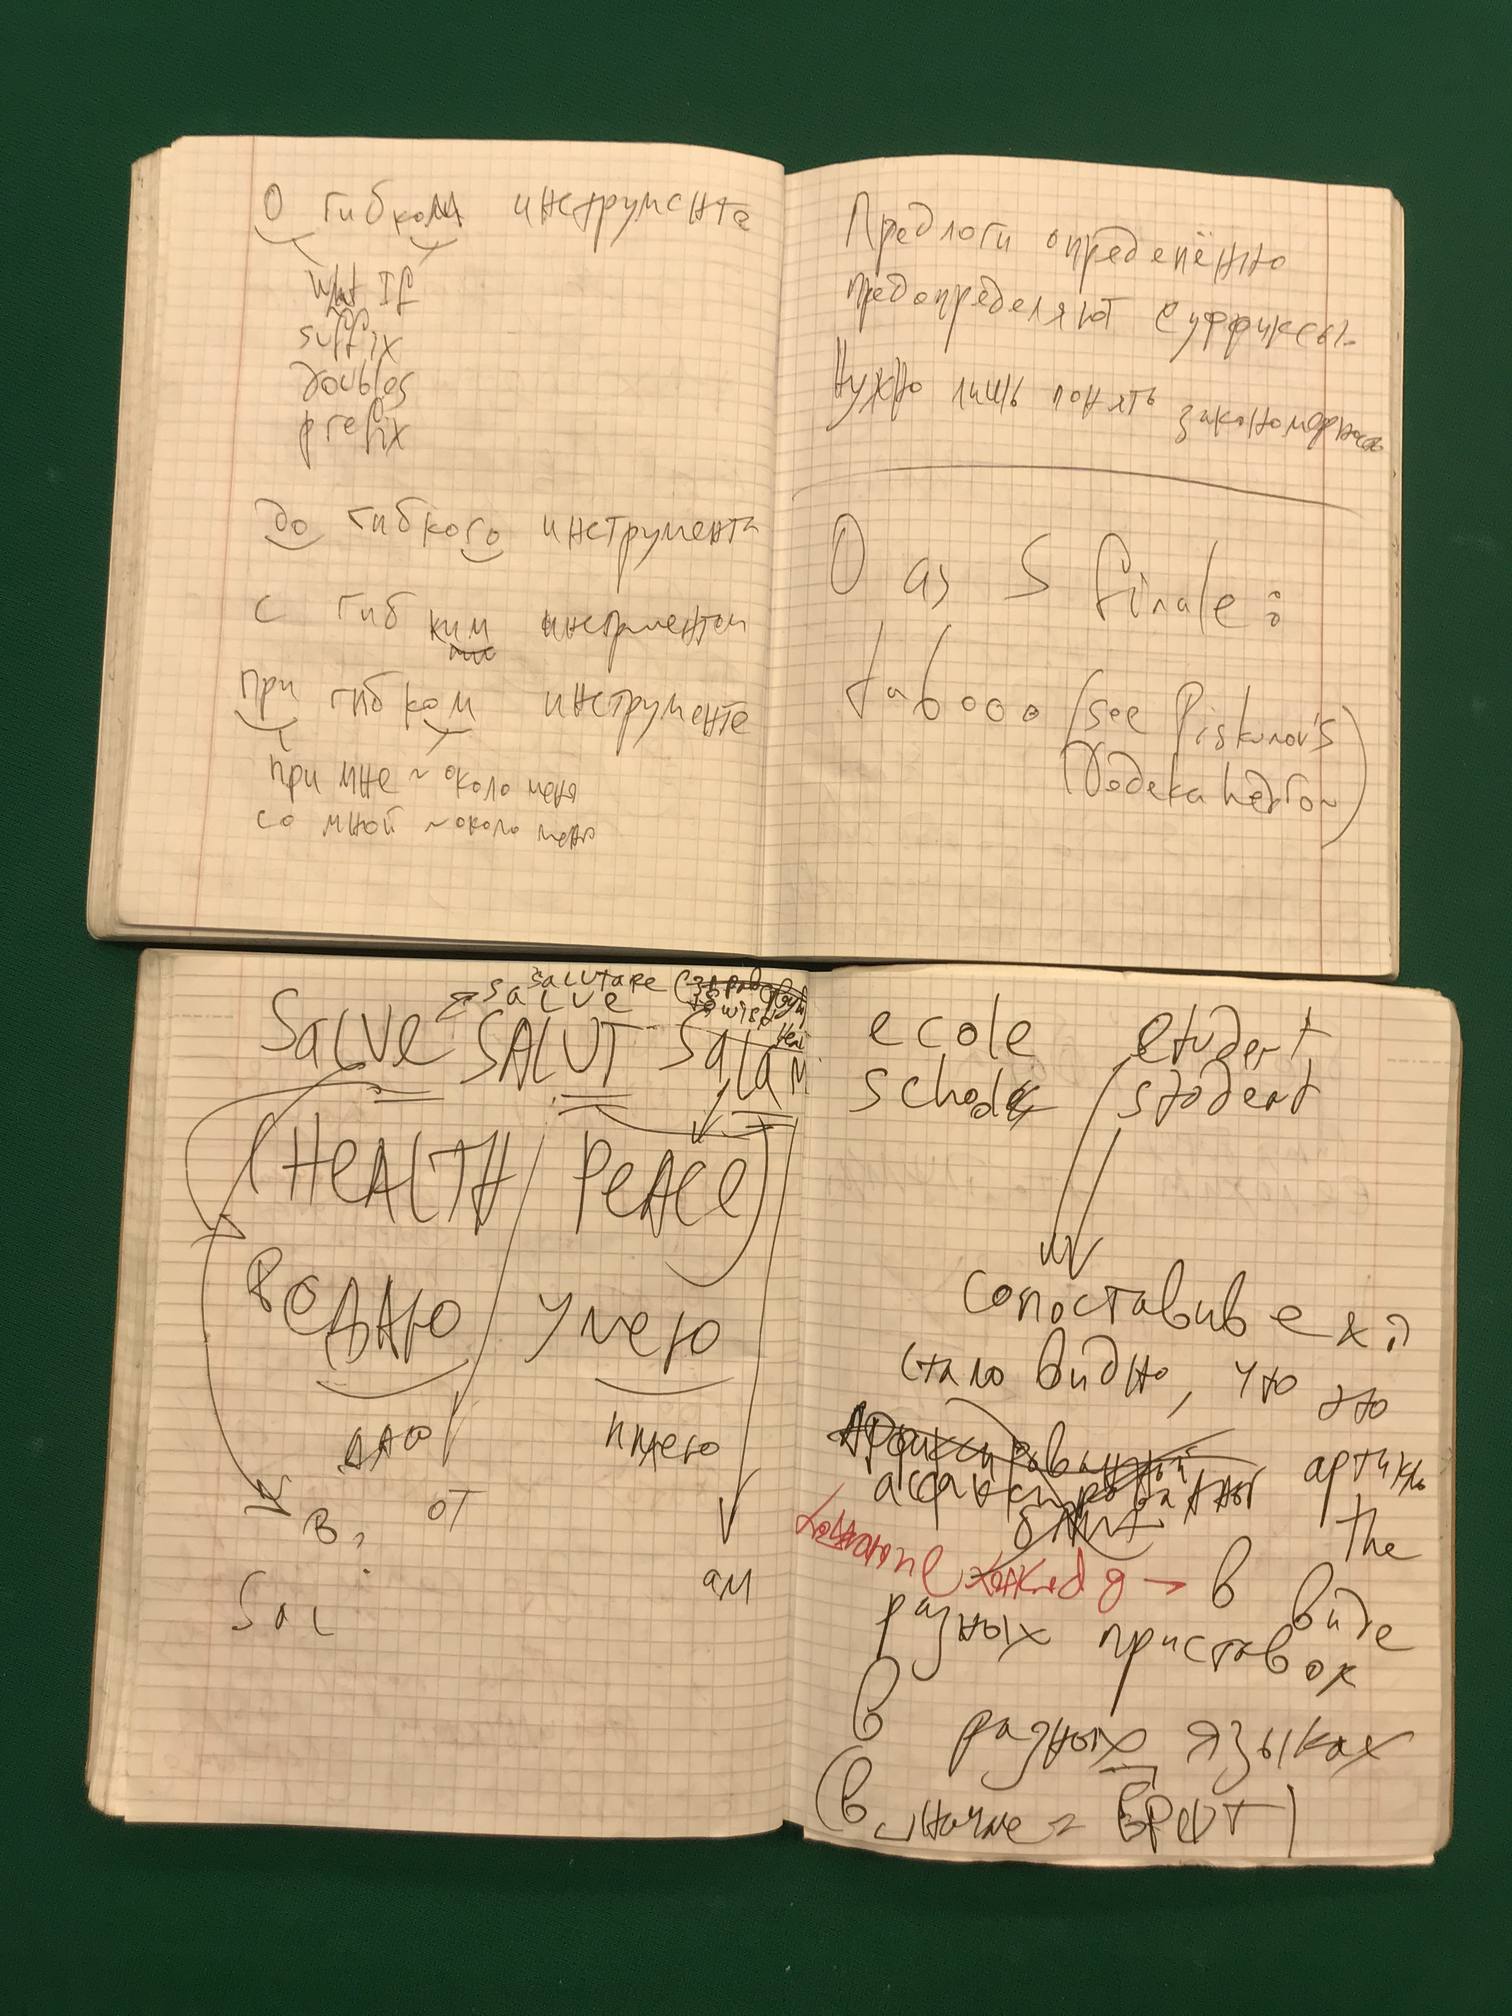 О гибком инструменте
What If
suffix
doubles
prefix
до гибкого инструмента
с гибким инструментом
при гибком инструменте
при мне ~ около меня
со мной ~ около меня
Предлоги определённо
предопределяют суффиксы.
Нужно лишь понять закономерность
O as S finale:
tabooo (see Piskunov's
Dodekahedron)
SALUTARE
SALVE
SALVE SALUT Salam
(HEALTH PEACE)
умею
имею
В, от
ам
Sal
ecole etudent
schola student
сопоставив ех
стало видно, что это
артикль
the
в виде
разных приставок
в разных языках